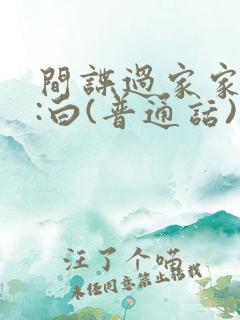 間諜過家家
:白(普通話)
汪了个喵
未经同意禁止转载